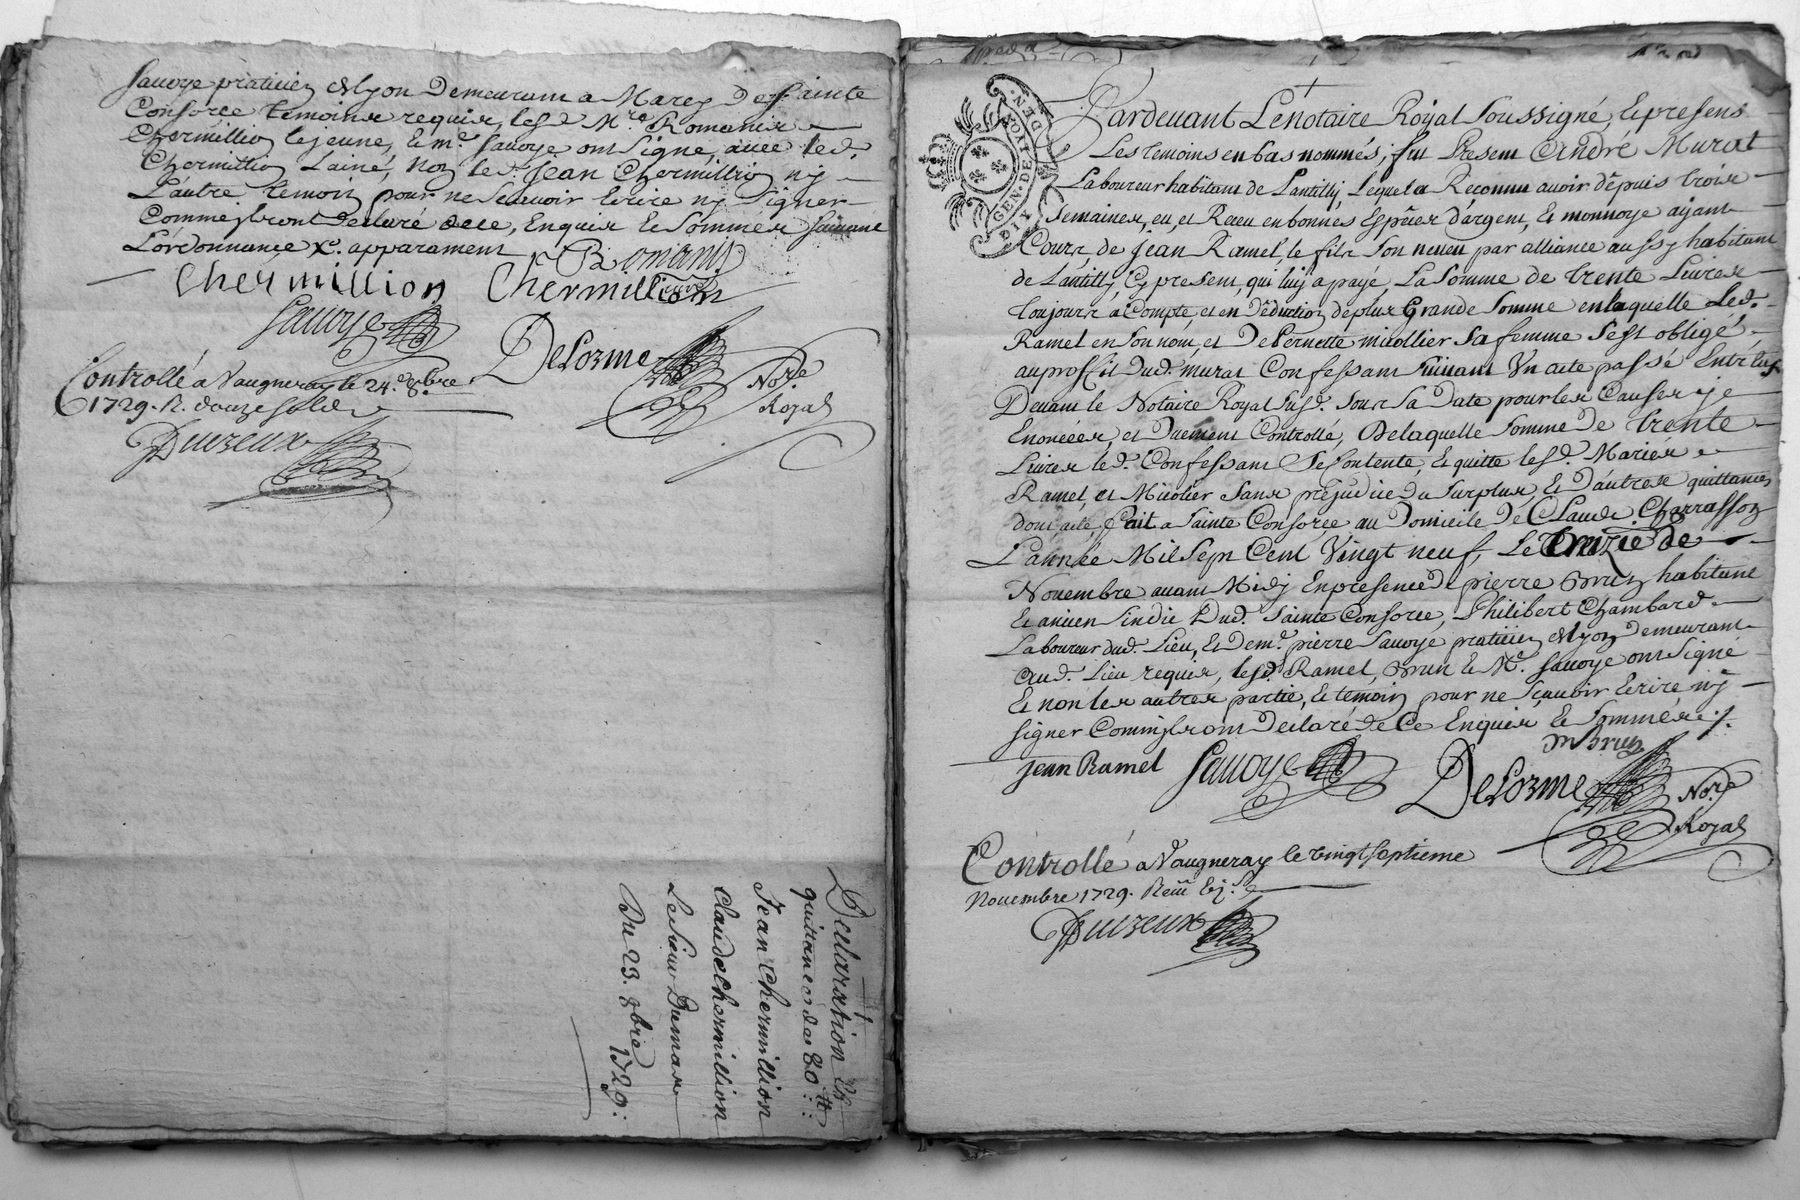 Savoye praticien à Lyon Demeurant a Marcy De Sainte
Consorce temoins requis, lesd. Mre Romanis
Chermillion lejeune, & me. Savoye ont Signé, avec led.
Chermillion L'ainé, Non led. Jean Chermillion ny
L'autre temoin pour ne Scavoir Ecrire ny Signer
Comme ils ont Declaré de ce, Enquis & Sommés suivant
L'ordonnance &c. apparament
Romanis
Chermillion Chermillion
Savoye
DeLorme Nore. Royal
Controllé a Vaugneray le 24.e 8bre.
1729. R. douze sols
Duvreux
Declaration &
quittance des 80tt
Jean Chermillion
Claude Chermillion
Le Sieur Dumas
Du 23. 8bre 1729.
GEN. DE LYON
DEN.
DIX
Pardevant Le Notaire Royal Soussigné, & presens
Les temoins en bas nommés, fut Present André Murat
Laboureur habitant de Lantilly, Lequel a Reconnu avoir depuis trois
semaines, eu, et Receu en bonnes Espêces d'argent, & monnoye ayant
Cours, de Jean Ramel, le fils Son neveu par alliance aussy habitant
de Lantilly, Cy present, qui luy a payé, La Somme de trente Livres
toujours a compte, et en Déduction de plus Grande Somme en laquelle Led.
Ramel en Son nom, et De Pernette micollier Sa femme S'est obligé
au proffit dud. murat Confessant suivant Un acte passé Entr'eux
Devant le Notaire Royal Susd. Sous Sa Date pour les Causes y
Enoncées, et Duement Controllé, De laquelle Somme De trente
Livres led. Confessant Se Contente, & quitte lesd. Mariés
Ramel, et Micolier Sans préjudice Du Surplus, & D'autres quittances
dont acte, fait a Sainte Consorce au Domicile De Claude Charrasson
L'année Mil Sept Cent Vingt neuf, Le Treizie de
Novembre avant Midy En presence de pierre Brun habitant
& ancien Sindic Dud. Sainte Consorce, Philibert Chambard
Laboureur dud. Lieu, & De me. pierre Savoye praticien à Lyon Demeurant
aud. Lieu requis, lesd. Ramel, Brun & Me. Savoye ont Signé
& non les autres partie, & temoin pour ne Sçavoir Ecrire ny
signer Comm'ils ont Declaré de Ce Enquis & Sommés
Brun
jean Ramel Savoye DeLorme Nore. Royal
Controllé a Vaugneray le vingt septieme
Novembre 1729. Receu
Duvreux